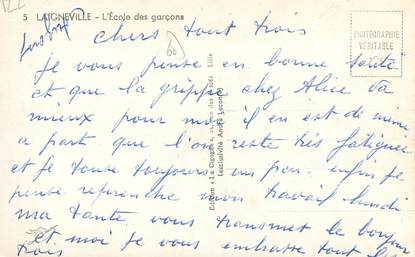 5 LAIGNEVILLE - L'École des garçons
chers tout trois
60
PHOTOGRAPHIE
VÉRITABLE
je vous pense en bonne santé
et que la grippe chez Alice va
mieux pour moi il en est de même
a part que l'on reste très fatiguée
et je tousse toujours un peu enfin je
pense reprendre mon travail lundi
ma tante vous transmet le bonjour
et moi je vous embrasse tout les
trois
Edition "La Cigogne", rue des Lille
(exclusivité André Leconte)